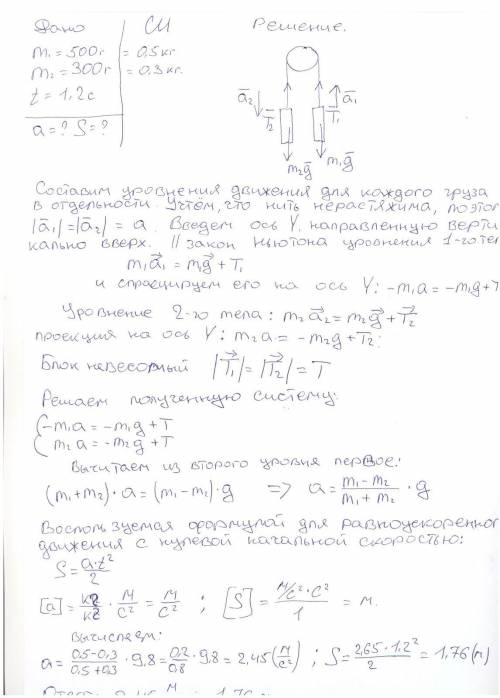 Дано
СИ
Решение.
m₁ = 500г = 0,5 кг.
m₂ = 300г = 0,3 кг.
t = 1,2 с
a = ? S = ?
a̅₂ T̅₂ T̅₁ a̅₁
m₂g̅ m₁g̅
Составим уровнения движения для каждого груза
в отдельности. Учтём, что нить нерастяжима, поэтом
|a̅₁| = |a̅₂| = a. Введем ось Y, направленную верти
кально вверх. II закон Ньютона уровнения 1-го тел
m₁a⃗₁ = m₁g⃗ + T₁
и спроецируем его на ось Y: -m₁a = -m₁g + T
Уровнение 2-го тела: m₂a⃗₂ = m₂g⃗ + T⃗₂
проекция на ось Y: m₂a = -m₂g + T₂.
Блок невесомый |T⃗₁| = |T⃗₂| = T
Решаем полученную систему:
{-m₁a = -m₁g + T
{m₂a = -m₂g + T
Вычитаем из второго уровня первое:
(m₁ + m₂) · a = (m₁ - m₂) · g => a = (m₁ - m₂)/(m₁ + m₂) · g
Воспользуемая формулой для равноускоренног
движения с нулевой начальной скоростью:
S = a·t²/2
[a] = кг/кг · м/с² = м/с² ; [S] = м/с² · с²/1 = м.
Вычисляем:
a = 0,5-0,3/0,5+0,3 · 9,8 = 0,2/0,8 · 9,8 = 2,45 (м/с²) ; S = 2,65·1,2²/2 = 1,76 (м)